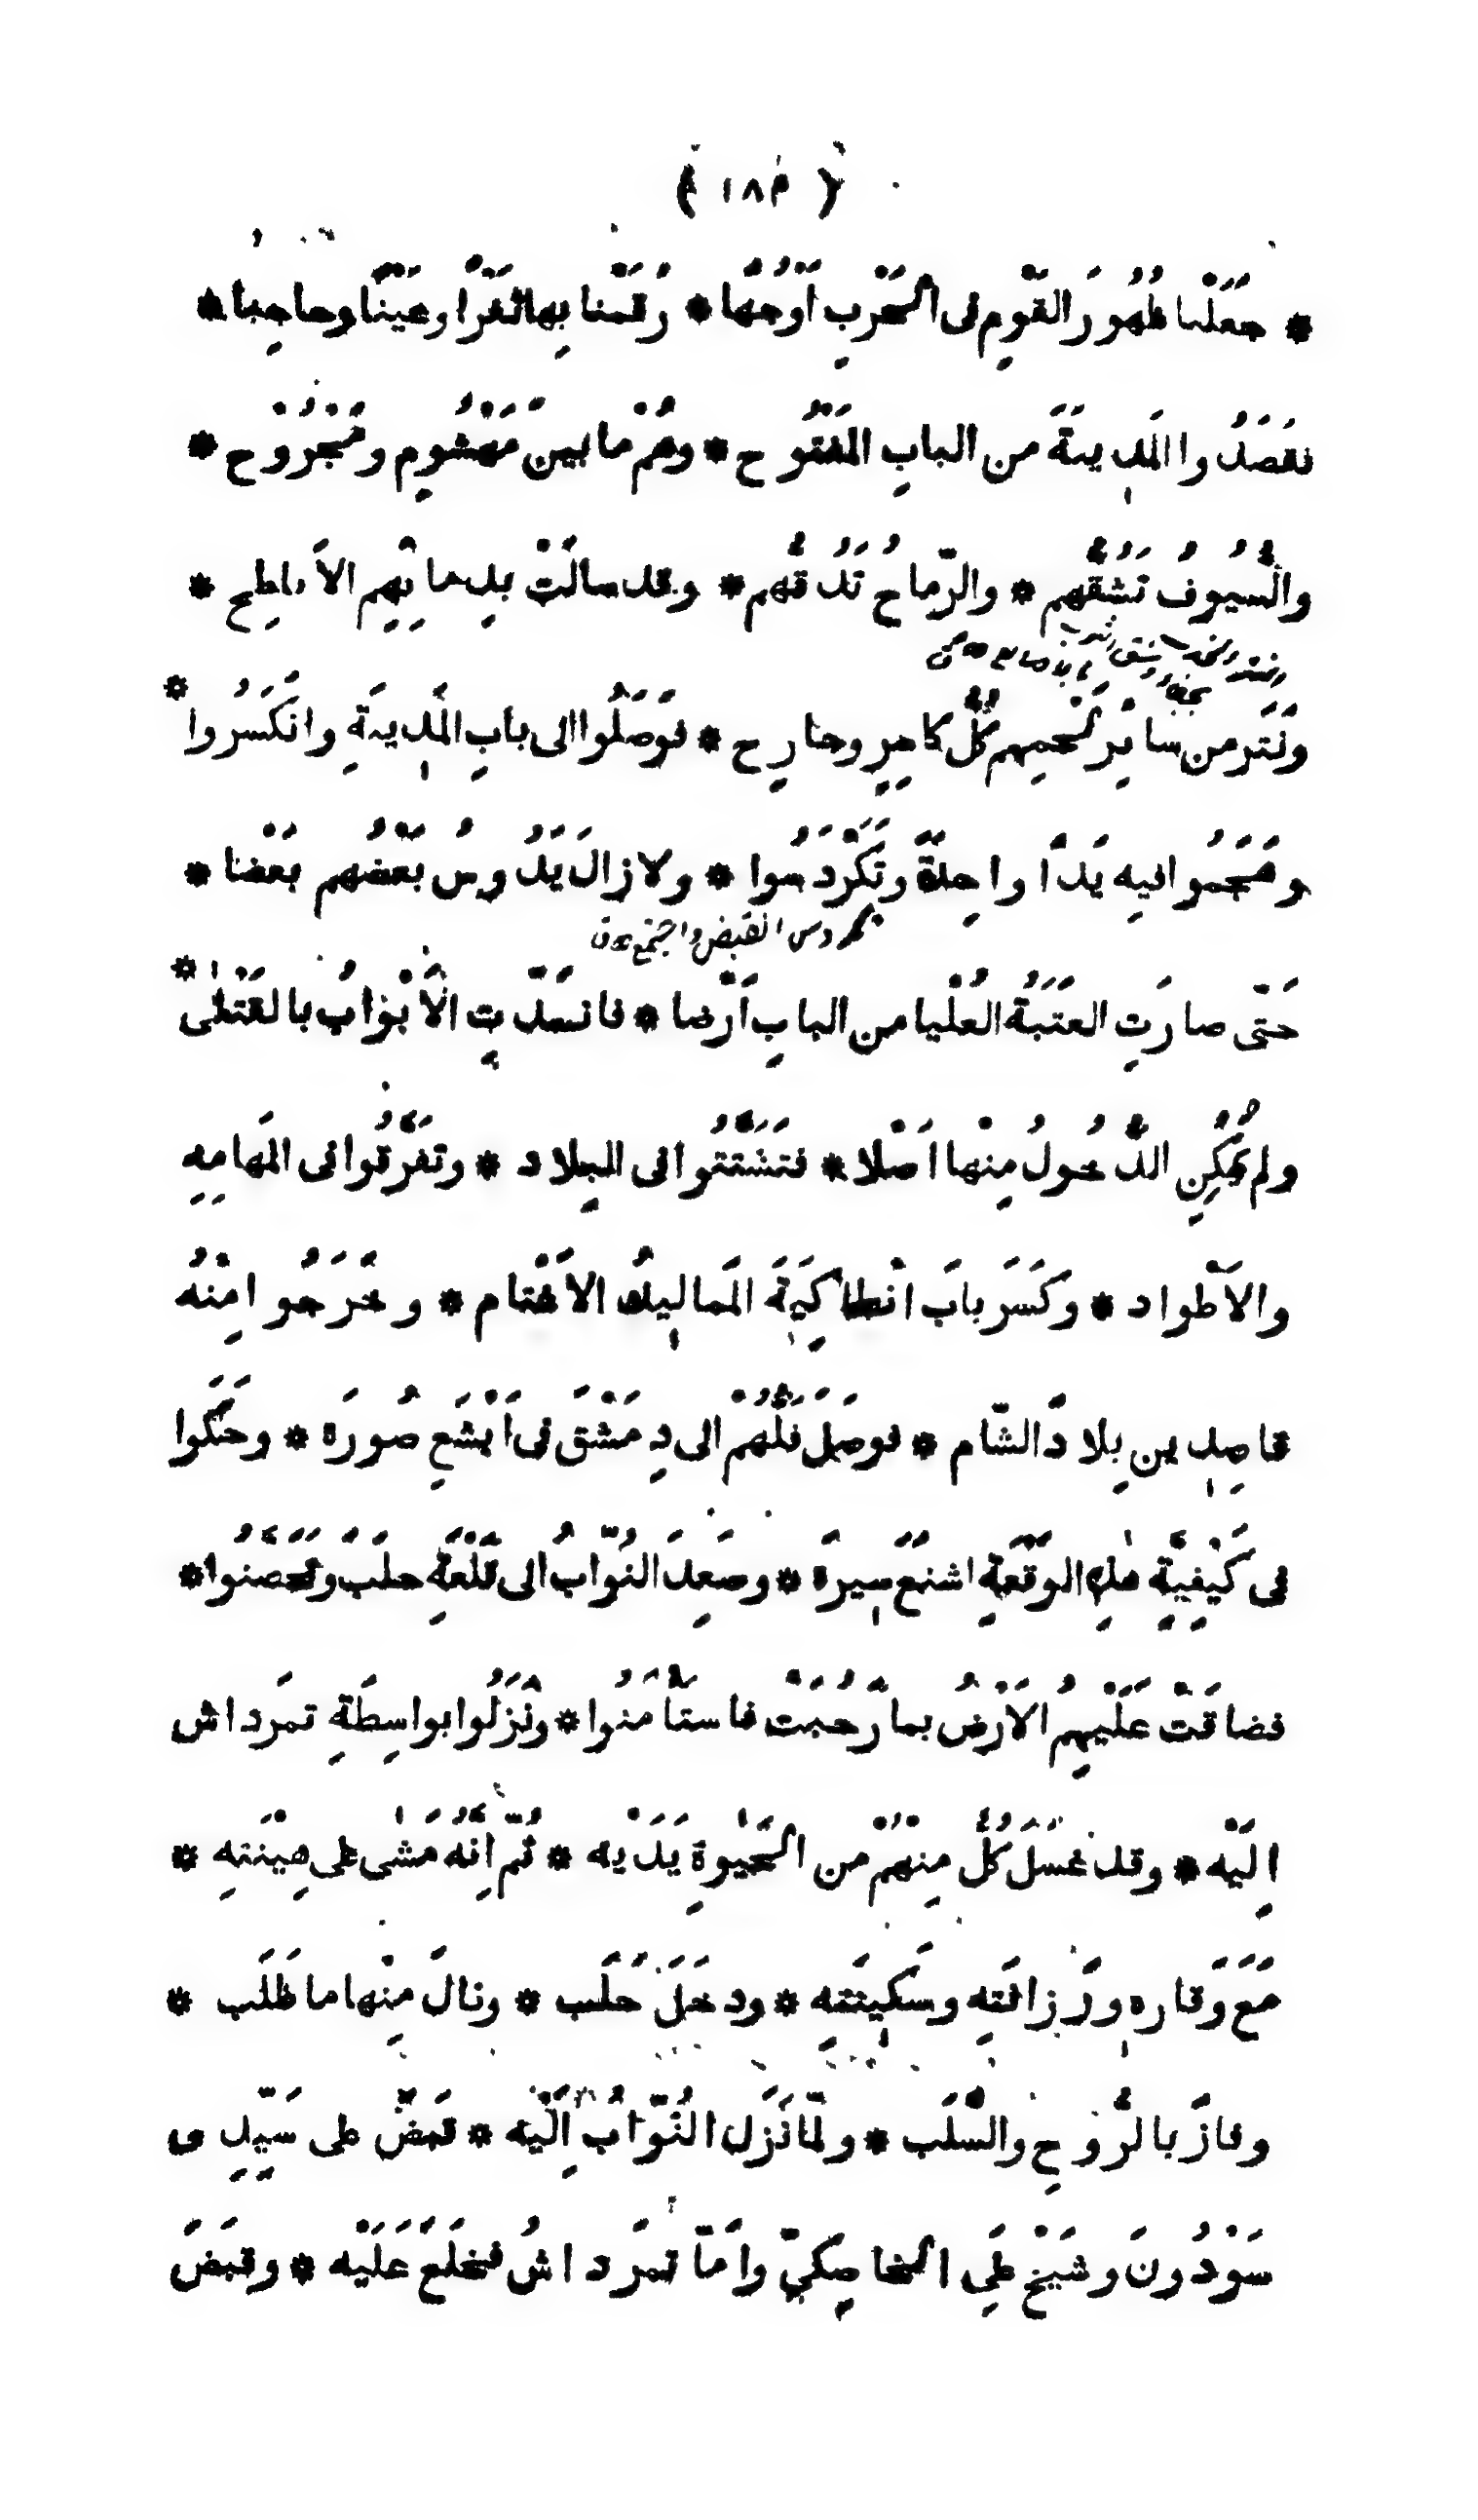 ( ١٨٢ )
* جَعَلْنا ظُهُورَ القَوْمِ فى الحَرْبِ اَوْجُهًا * رَقَمْنا بِها ثَغْرًا وعَيْنًا وحاجِبا *
فقَصَدُوا المَدِينَةَ من البابِ المَفْتُوح * وهُمْ ما بين مَهْشُومٍ ومَجْرُوْح *
والسُّيُوفُ تَشُقُّهم * والرِّماحُ تَدُقُّهم * وقد سالَتْ بدِمائِهِم الاَباطِح *
ونَتَر من سائِر لَحْمِهِم كُلُّ كاسِرٍ وجارِح * فوَصَلُوا الى بابِ المَدِينَةِ وانكَسَرُوا *
وهَجَمُوا فيه يَدًا واحِدةً وتَكَرْدَسُوا * ولا زالَ يَدُوسُ بَعْضُهم بَعْضا *
حَتّى صارَتِ العَتَبَةُ العُلْيا من البابِ اَرْضا * فانسَدَّتِ الاَبْوابُ بالقَتْلى *
ولم يُمْكِنِ الدُّخُولُ مِنْها اَصْلا * فتَشَتَّتُوا فى البِلاد * وتفَرَّقُوا فى المَهامِهِ
والاَطْواد * وكَسَر بابَ انْطاكِيَةَ المَمالِيكُ الاَغْتام * وخَرَجُوا مِنْهُ
قاصِدِين بِلادَ الشّام * فوصَلَ فَلُّهُمْ الى دِمَشْقَ فى اَبْشَعِ صُورَة * وحَكَوا
فى كَيْفِيَّةِ هٰذِهِ الوَقْعَةِ اشنَعَ سِيرَة * وصَعِدَ النُوّابُ الى قَلْعَةِ حلَبَ وتَحَصَّنُوا *
فضاقَتْ عَلَيْهِمُ الاَرْضُ بما رَحُبَتْ فاستَأْمَنُوا * ونَزَلُوا بواسِطَةِ تمرَداش
اِلَيْه * وقد غسَلَ كُلٌّ مِنْهُمْ من الحَيٰوةِ يَدَيْه * ثُمّ اِنَّهُ مَشٰى على هِينَتِهِ *
مَعَ وَقارِهِ ورَزانَتِه وسَكِينَتِه * ودخَلَ حَلَب * ونالَ مِنْها ما طَلَب *
وفازَ بالرُّوحِ والسَّلَب * ولمّا نَزَل النُّوّابُ اِلَيْه * قبَضَ على سَيِّدِى
سَوْدُونَ وشَيْخ عَلَى الخاصِكيّ واَمّا تمرَداشُ فخلَعَ عَلَيْه * وقبَضَ